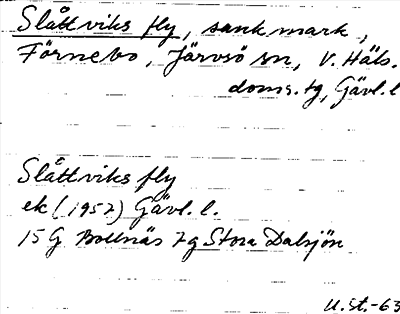 Slåttviks fly, sank mark,
Förnebo, Järvsö sn, V. Häls.
doms.tg, Gävl.l
Slåttviks fly
ek (1957) Gävl.l.
15G Bollnäs 7g Stora Dalsjön
U.St.-63